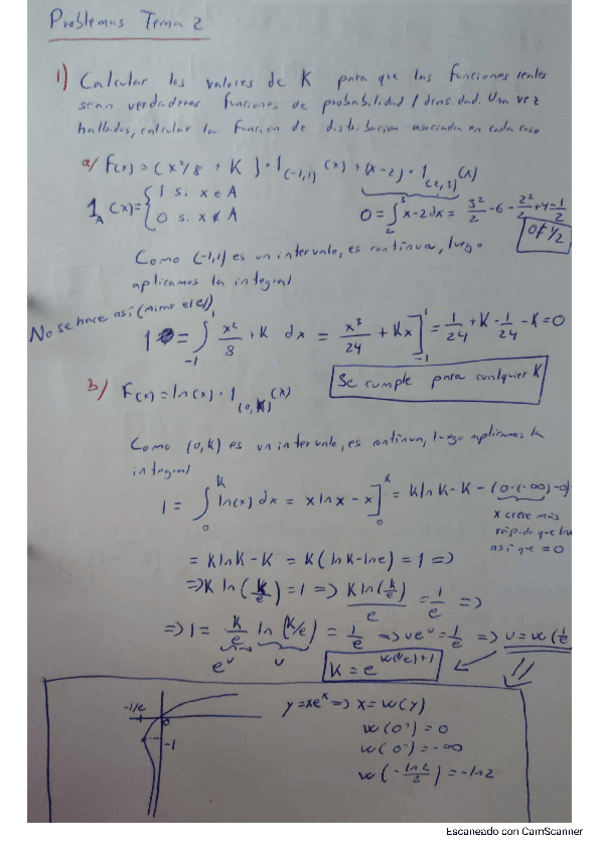 Problemas Tema 2
1) Calcular los valores de K para que las funciones reales
sean verdaderas funciones de probabilidad / densidad. Una vez
hallados, calcular la función de distribución asociada en cada caso
a/ F(x) = (x²/8 + K)·1(-1,1)(x) + (x-2)·1(2,3)(x)
1A(x) = { 1 si x∈A
0 si x∉A
0 = ∫₂³ x-2 dx = 3²/2 - 6 - 2²/2 + 4 = 1/2
0≠1/2
Como (-1,1) es un intervalo, es continua, luego
aplicamos la integral
No se hace así (mirar el e1)
1 = ∫₋₁¹ x²/8 + K dx = x³/24 + Kx]₋₁¹ = 1/24 + K - 1/24 - K = 0
Se cumple para cualquier K
b) F(x) = ln(x)·1(0,K)(x)
Como (0,K) es un intervalo, es continua, luego aplicamos la
integral
1 = ∫₀ᴷ ln(x) dx = x ln x - x]₀ᴷ = K ln K - K - (0·(-∞)-0)
x crece más
rápido que ln
así que = 0
= K ln K - K = K(ln K - ln e) = 1 =>
=> K ln(K/e) = 1 => K ln(K/e)/e = 1/e =>
=> 1 = K/e ln(K/e) = 1/e => ve^v = 1/e => v = W(1/e
e^v v
K = e^(W(1/e)+1)
-1/e 0
-1
y = xe^x => x = W(y)
W(0⁺) = 0
W(0⁻) = -∞
W(-ln2/2) = -ln2
Escaneado con CamScanner